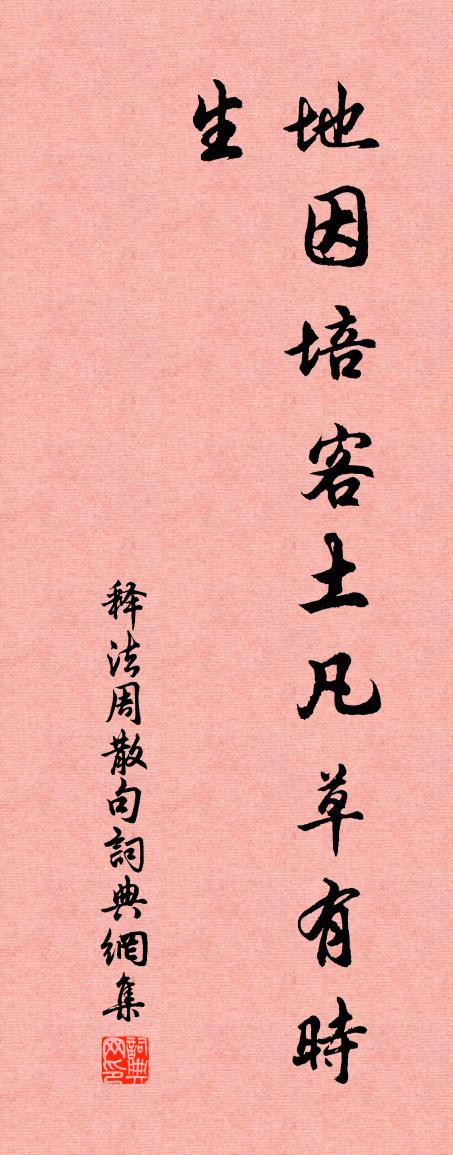 地因培客土凡草有時
生
释法周散句詞典網集
詞典网印